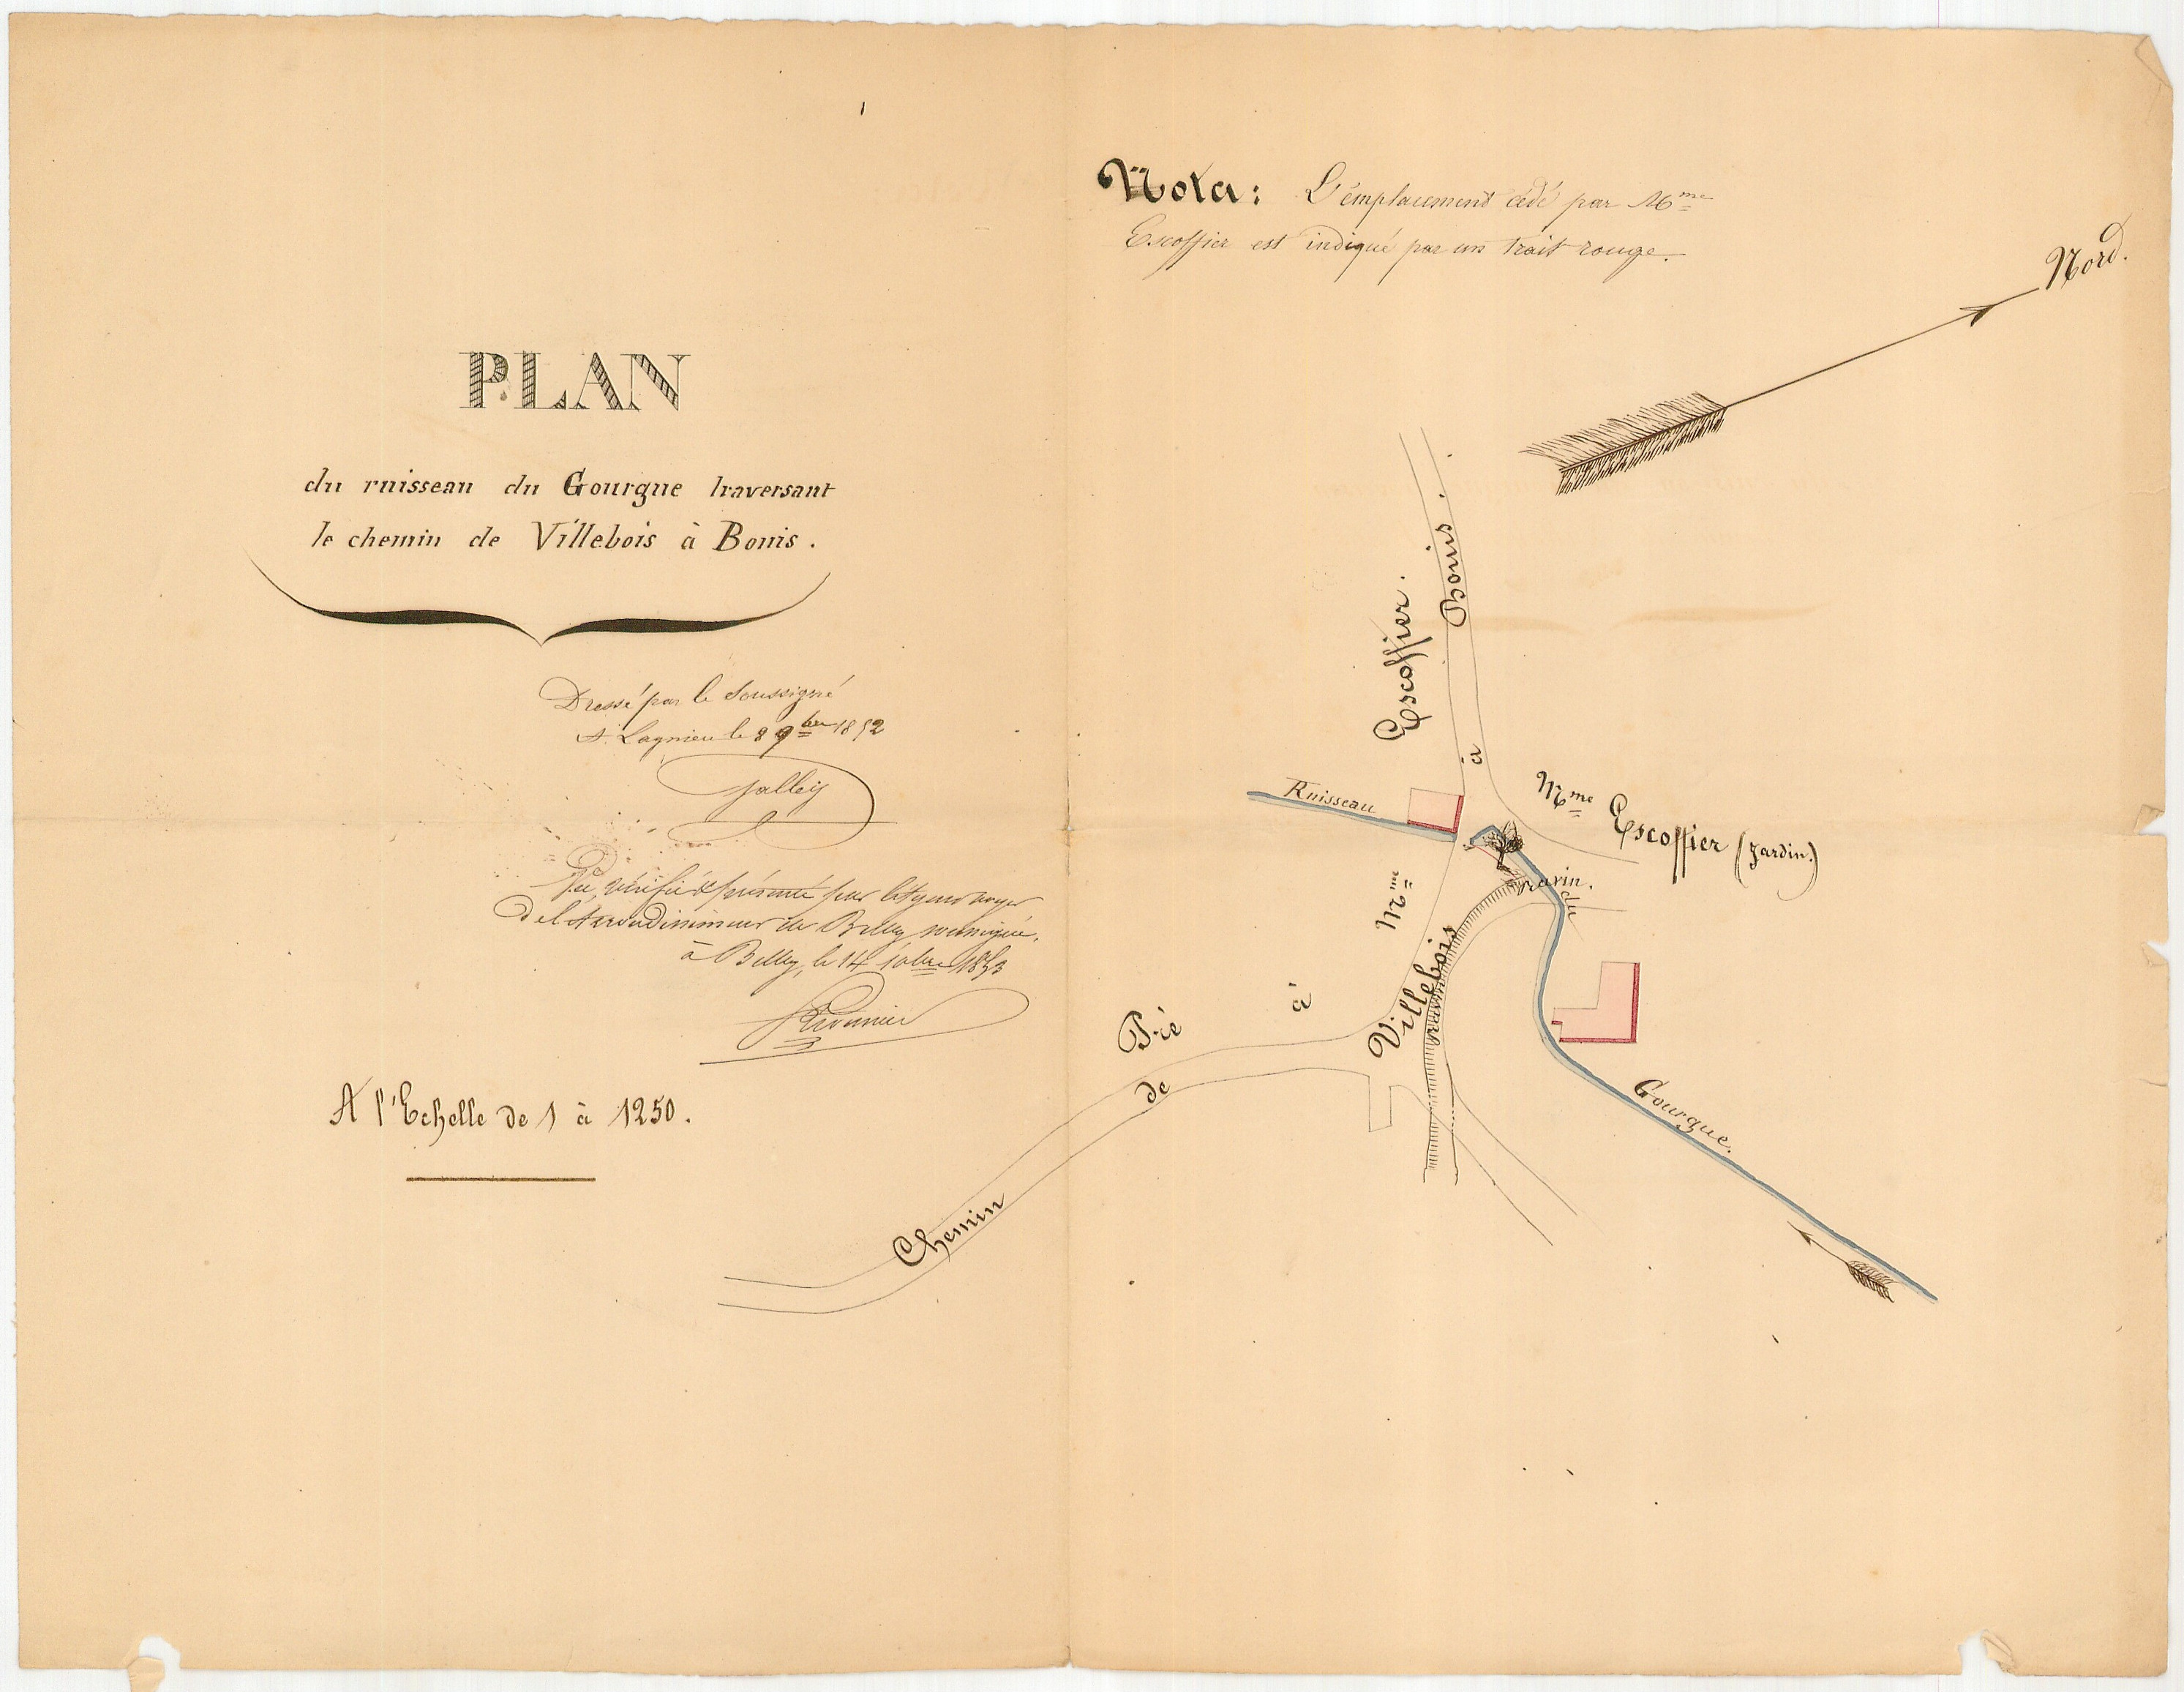 PLAN
du ruisseau du Gourgue traversant
le chemin de Villebois à Bouis.
Dressé par le Soussigné
A Lagnieu le 8 9bre 1852
Jalley
Vu, vérifié & présenté par l'Agent voyer
de l'Arrondissement de Belley soussigné,
à Belley, le 14 10bre 1853
A l'Echelle de 1 à 1250.
Nota: L'émplacement cédé par Mme
Escoffier est indiqué par un trait rouge.
Nord.
Bouis.
Escoffier.
à
Ruisseau
Mme Escoffier (Jardin.)
ravin.
du
Mme
Villebois
à
Pré
de
Chemin
Gourgue.